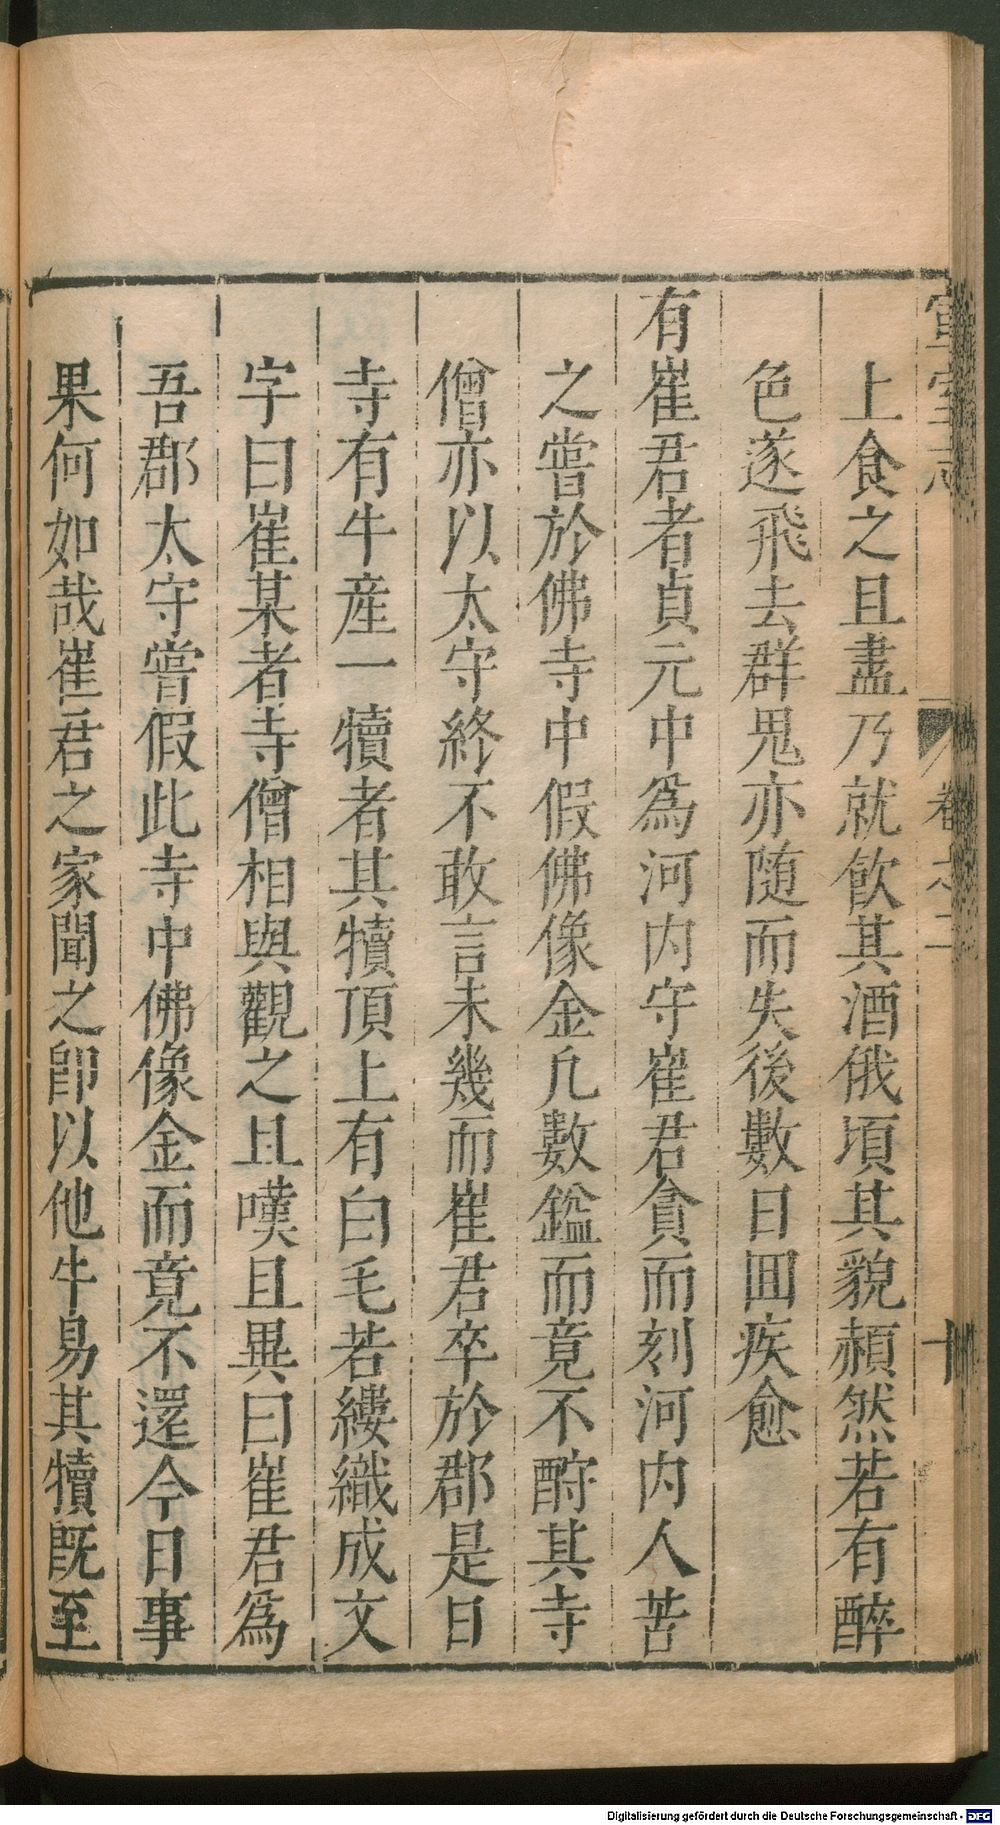 宣室志 卷之二 十
上食之且盡乃就飲其酒俄頃其貌頳然若有醉
色遂飛去群鬼亦随而失後數日囬疾愈
有崔君者貞元中為河内守崔君貪而刻河内人苦
之嘗於佛寺中假佛像金凢數鎰而竟不酧其寺
僧亦以太守終不敢言未幾而崔君卒於郡是日
寺有牛産一犢者其犢頂上有白毛若縷織成文
字曰崔某者寺僧相與觀之且嘆且異曰崔君為
吾郡太守嘗假此寺中佛像金而竟不還今日事
果何如哉崔君之家聞之即以他牛易其犢既至
Digitalisierung gefördert durch die Deutsche Forschungsgemeinschaft - DFG